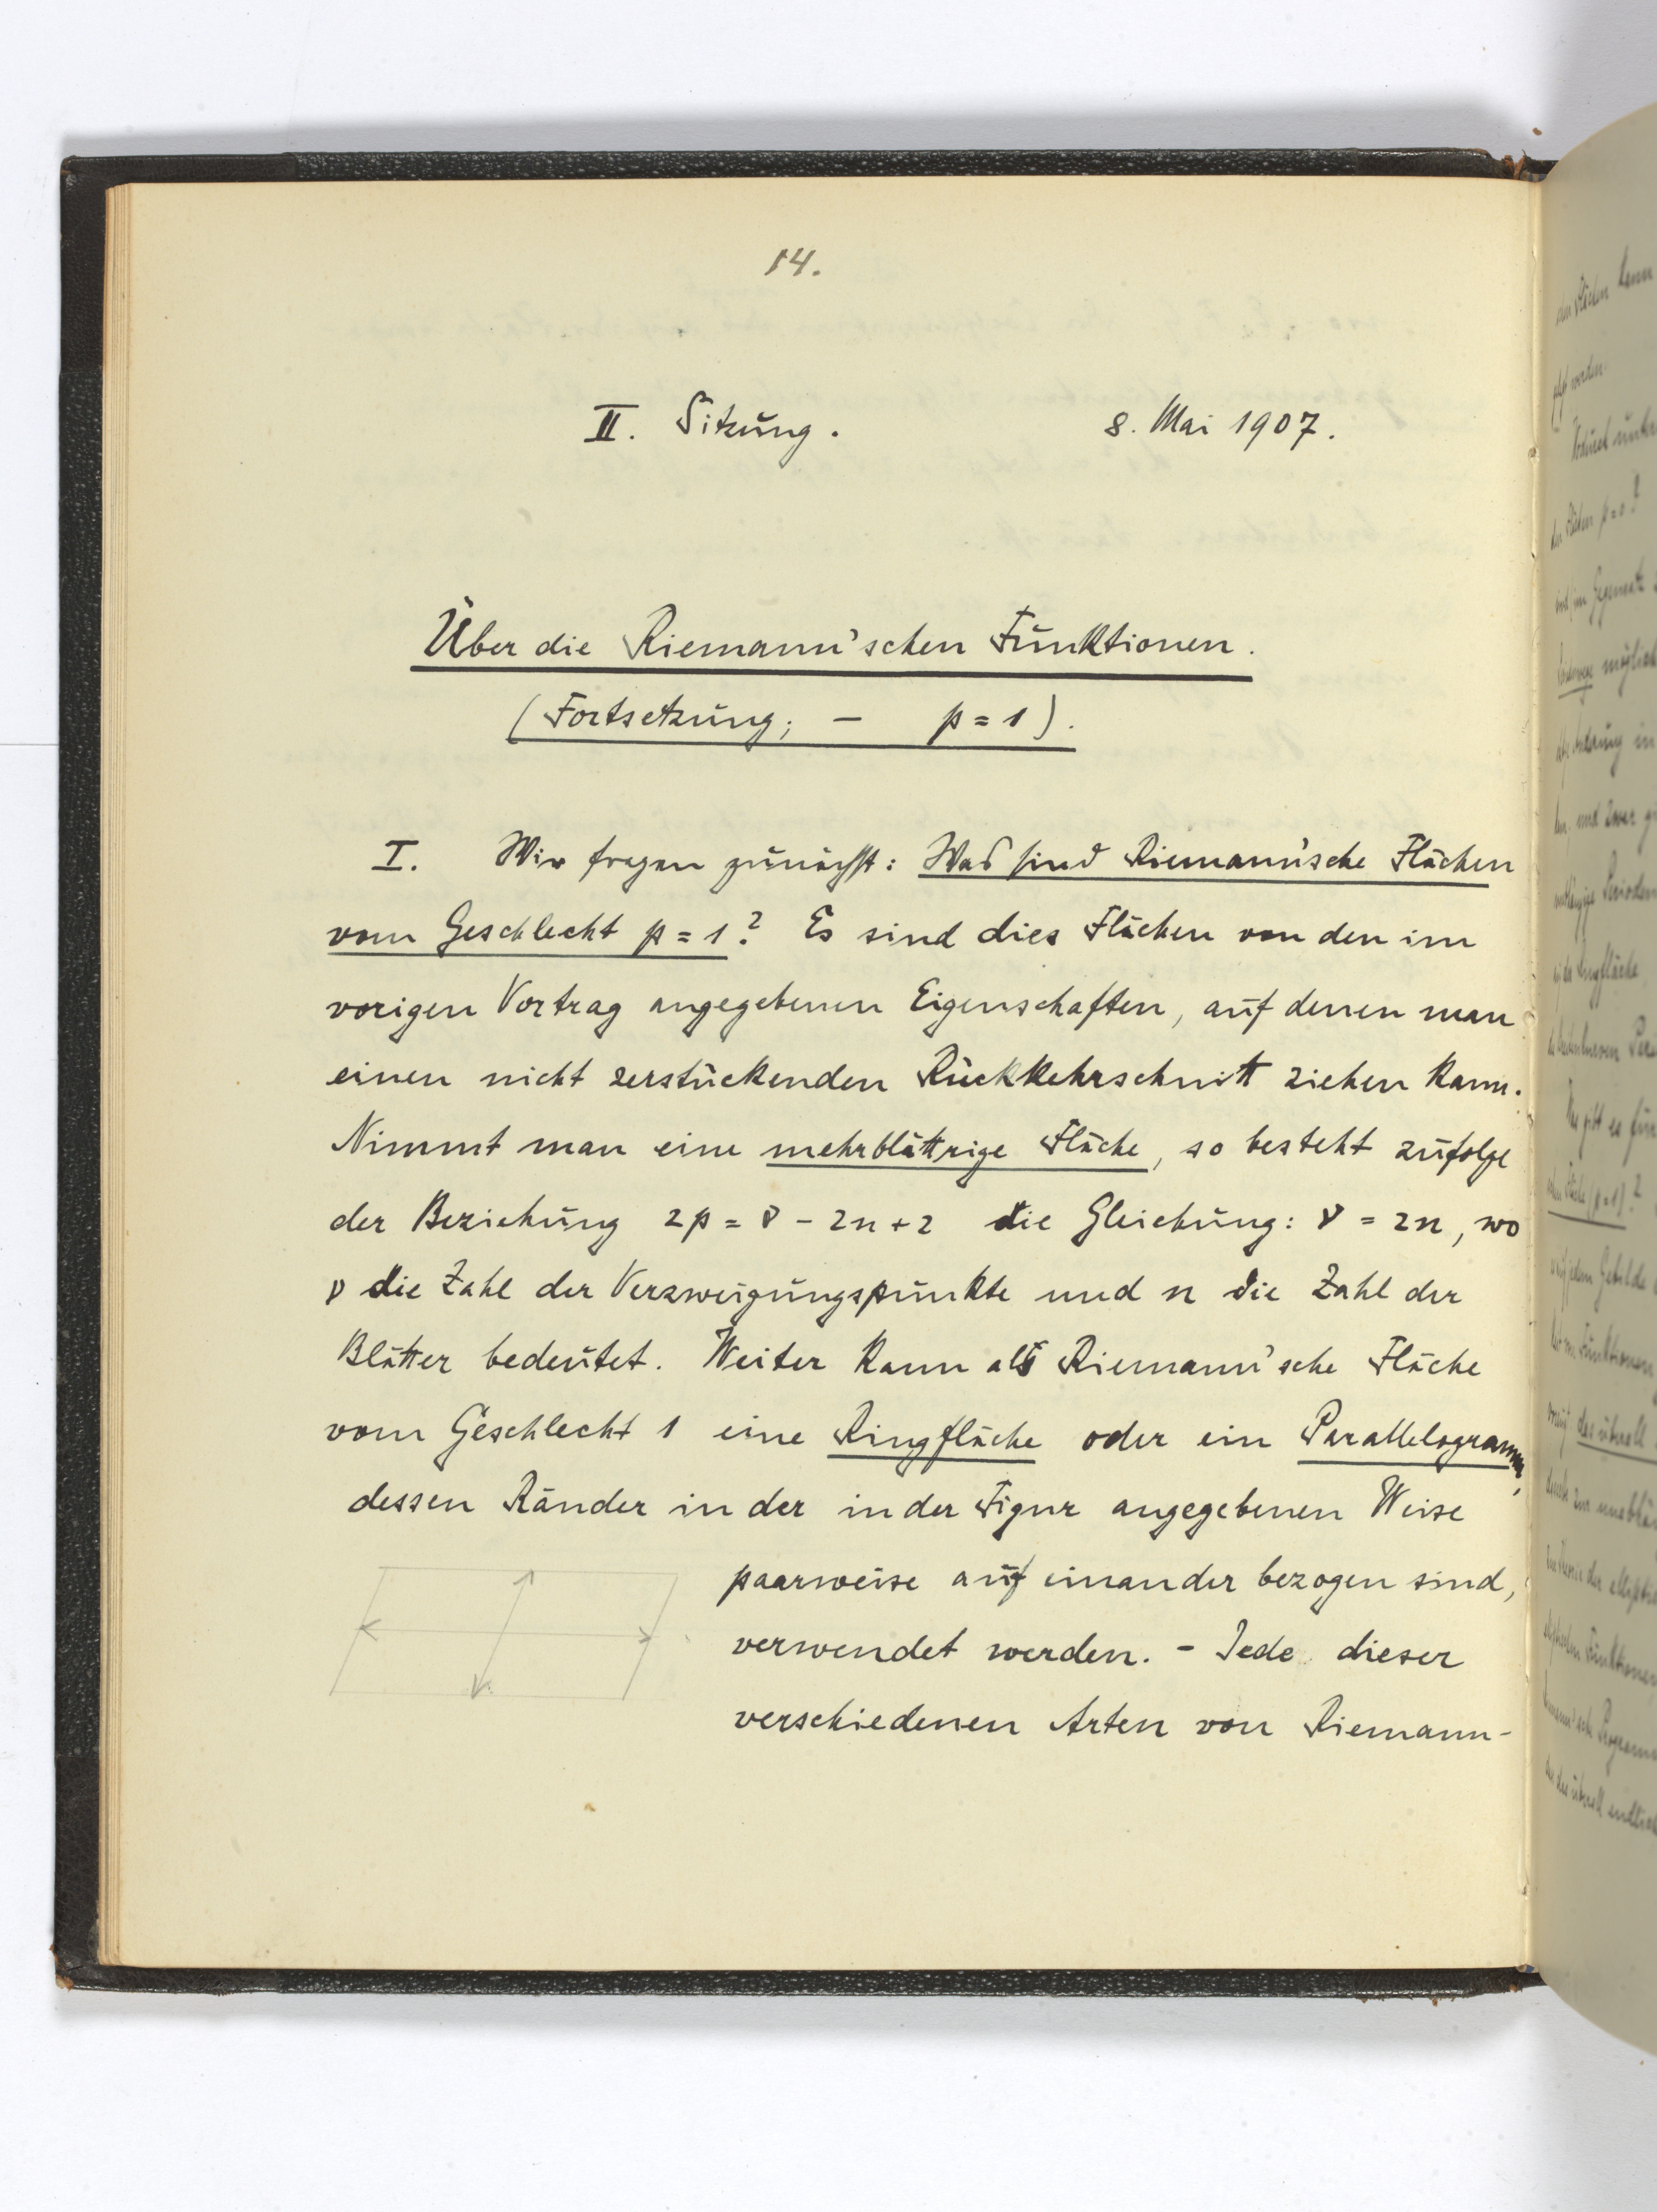 14.
II. Sitzung. 8. Mai 1907.
Über die Riemann'schen Funktionen.
(Fortsetzung; – p = 1).
I. Wir fragen zunächst: Was sind Riemann'sche Flächen
vom Geschlecht p = 1? Es sind dies Flächen von den im
vorigen Vortrag angegebenen Eigenschaften, auf denen man
einen nicht zerstückenden Rückkehrschnitt ziehen kann.
Nimmt man eine mehrblättrige Fläche, so besteht zufolge
der Beziehung 2p = ν - 2n + 2 die Gleichung: ν = 2n, wo
ν die Zahl der Verzweigungspunkte und n die Zahl der
Blätter bedeutet. Weiter kann als Riemann'sche Fläche
vom Geschlecht 1 eine Ringfläche oder ein Parallelogramm,
dessen Ränder in der in der Figur angegebenen Weise
paarweise auf einander bezogen sind,
verwendet werden. – Jede dieser
verschiedenen Arten von Riemann-